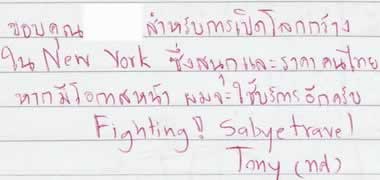 ขอบคุณ สำหรับการเปิดโลกกว้าง
ใน New York ซึ่งสนุกและราคาคนไทย
หากมีโอกาสหน้า ผมจะใช้บริการอีกครับ
Fighting! Sabyetravel
Tony (ทศ)